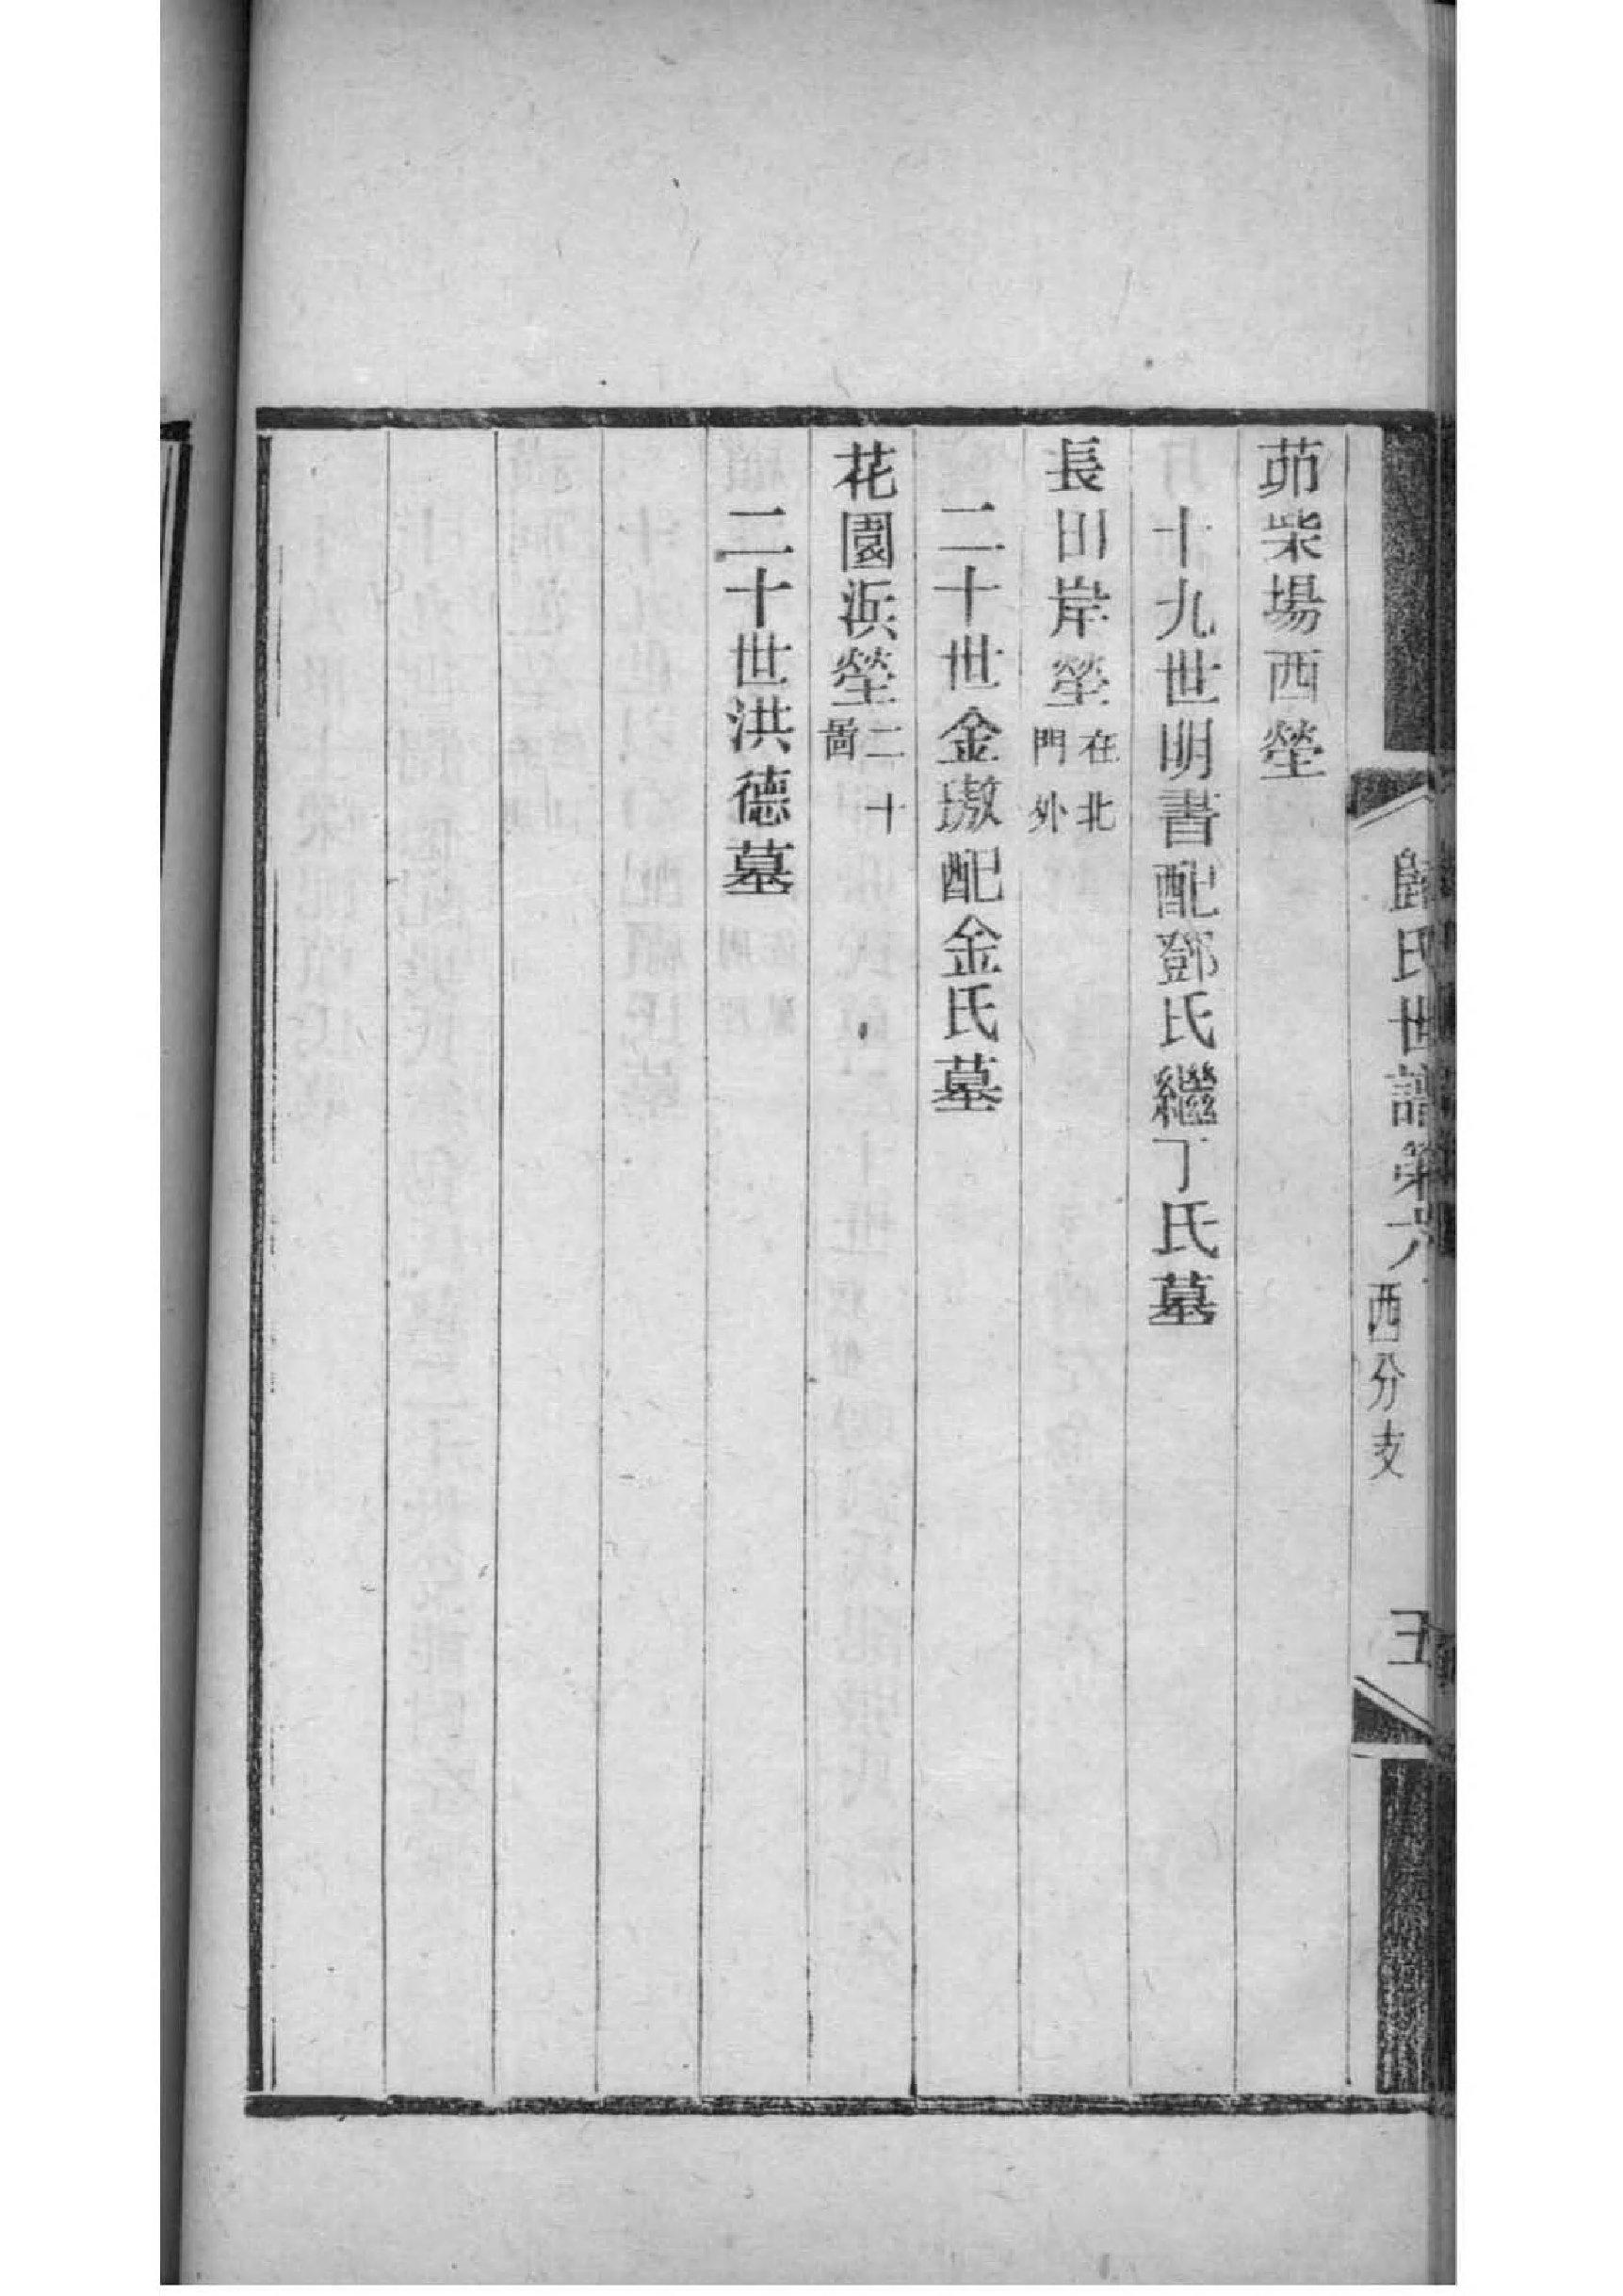 茆柴場西塋
十九世明書配鄧氏繼丁氏墓
長田岸塋在北門外
二十世金璈配金氏墓
花園浜塋二十啚
二十世洪德墓
歸氏世譜第六 西分支 五